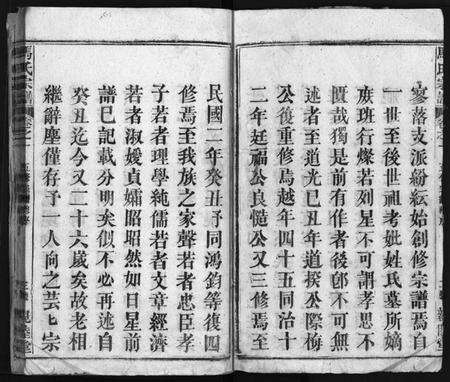 寥落支派紛紜始創修宗譜焉自
一世至後世祖考妣姓氏墓所嫡
庶班行燦若列星不可謂孝思不
匱哉獨是前有作者後郎不可無
述者至道光己丑年道揆公際梅
公後重修焉越年四十五同治十
二年廷福公良慥公又三修焉至
民國二年癸丑予同鴻鈞等復四
修焉至我族之家聲若者忠臣孝
子若者理學純儒若者文章經濟
若者淑媛貞孀昭昭然如日星前
譜已記載分明矣似不必再述自
癸丑迄今又二十六歲矣故老相
繼辭塵僅存予一人向之芸芸宗
馬氏宗譜